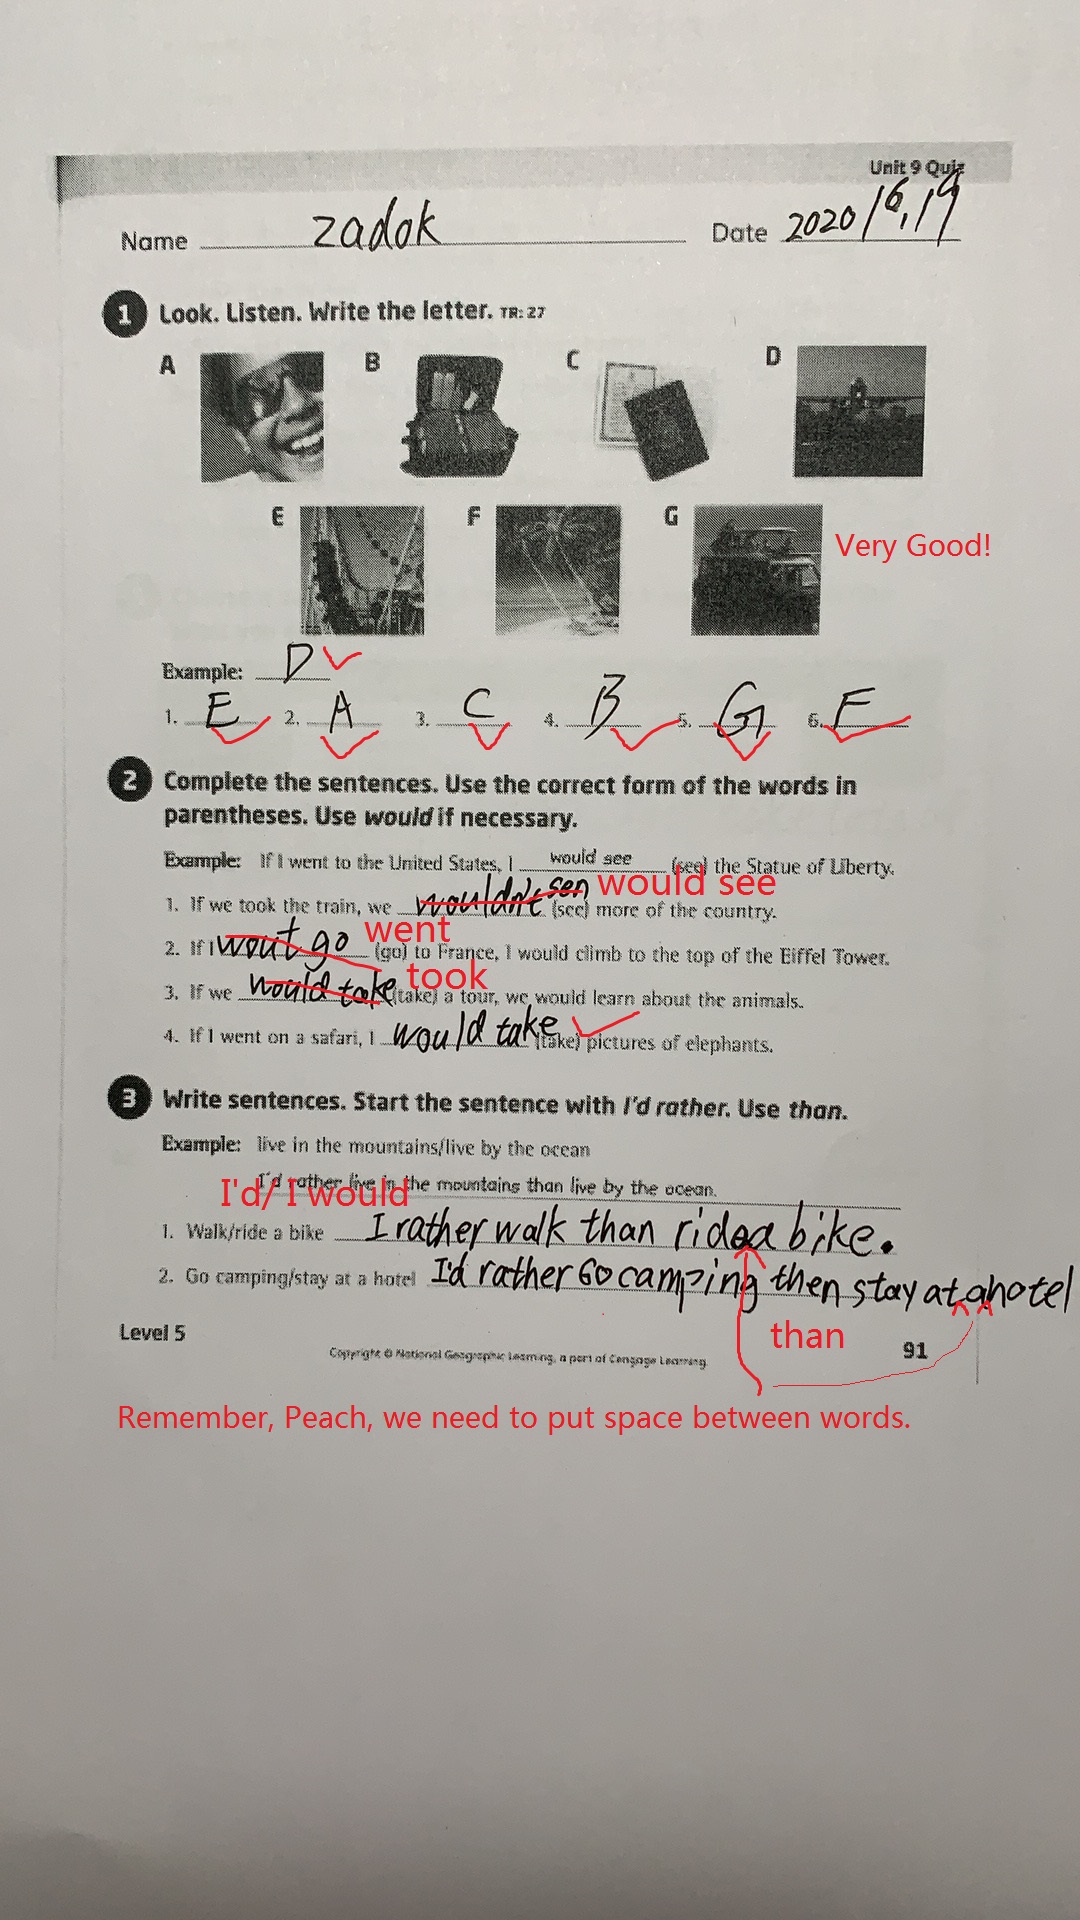 Unit 9 Quiz
Name zadok Date 2020/6,19
1 Look. Listen. Write the letter. TR: 27
A B C D
E F G
Very Good!
Example: D
1. E 2. A 3. C 4. B 5. G 6. F
2 Complete the sentences. Use the correct form of the words in
parentheses. Use would if necessary.
Example: If I went to the United States, I would see (see) the Statue of Liberty.
1. If we took the train, we wouldn't sen would see (see) more of the country.
2. If I wout go went (go) to France, I would climb to the top of the Eiffel Tower.
3. If we would take took (take) a tour, we would learn about the animals.
4. If I went on a safari, I would take (take) pictures of elephants.
3 Write sentences. Start the sentence with I'd rather. Use than.
Example: live in the mountains/live by the ocean
I'd rather live in the mountains than live by the ocean.
I'd/ I would
1. Walk/ride a bike I rather walk than ride a bike.
2. Go camping/stay at a hotel I'd rather Go camping then stay at a hotel
than
Level 5
Copyright © National Geographic Learning, a part of Cengage Learning
91
Remember, Peach, we need to put space between words.